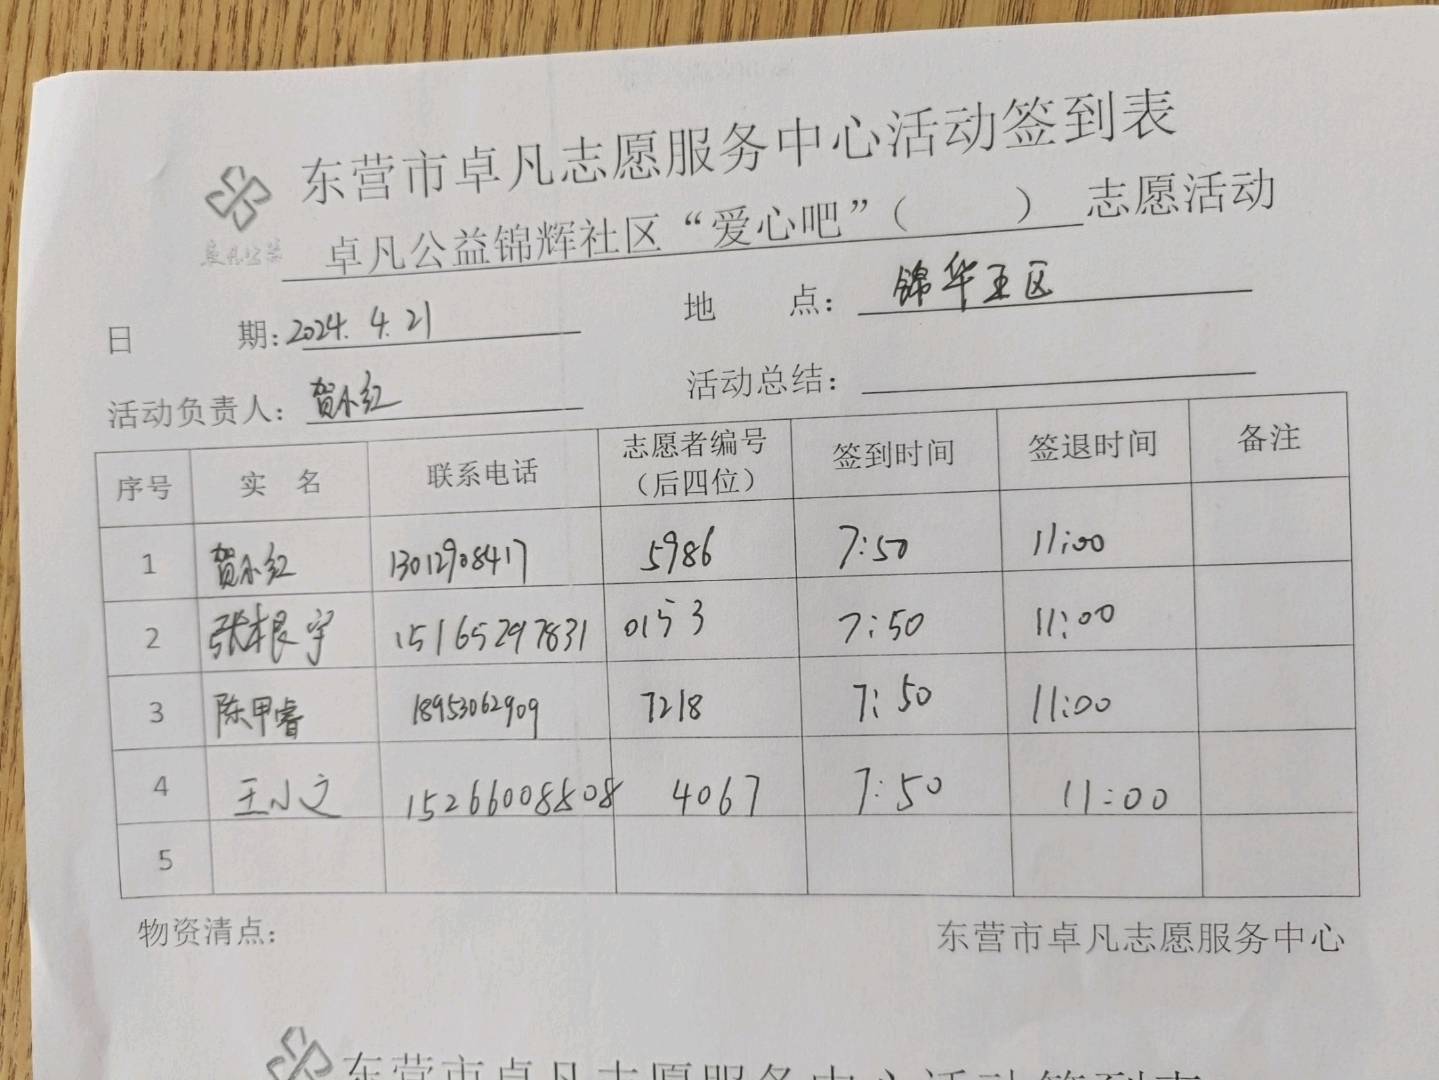 东营市卓凡志愿服务中心活动签到表
卓凡公益锦辉社区“爱心吧”（ ）志愿活动
卓凡公益
日 期：2024.4.21 地 点：锦华五区
活动负责人：贺小红 活动总结：
序号 实 名 联系电话 志愿者编号（后四位） 签到时间 签退时间 备注
1 贺小红 13012908417 5986 7:50 11:00
2 张根宇 15165297831 0153 7:50 11:00
3 陈甲睿 18953062909 7218 7:50 11:00
4 王小文 15266008808 4067 7:50 11:00
5
物资清点： 东营市卓凡志愿服务中心
东营市卓凡志愿服务中心活动签到表